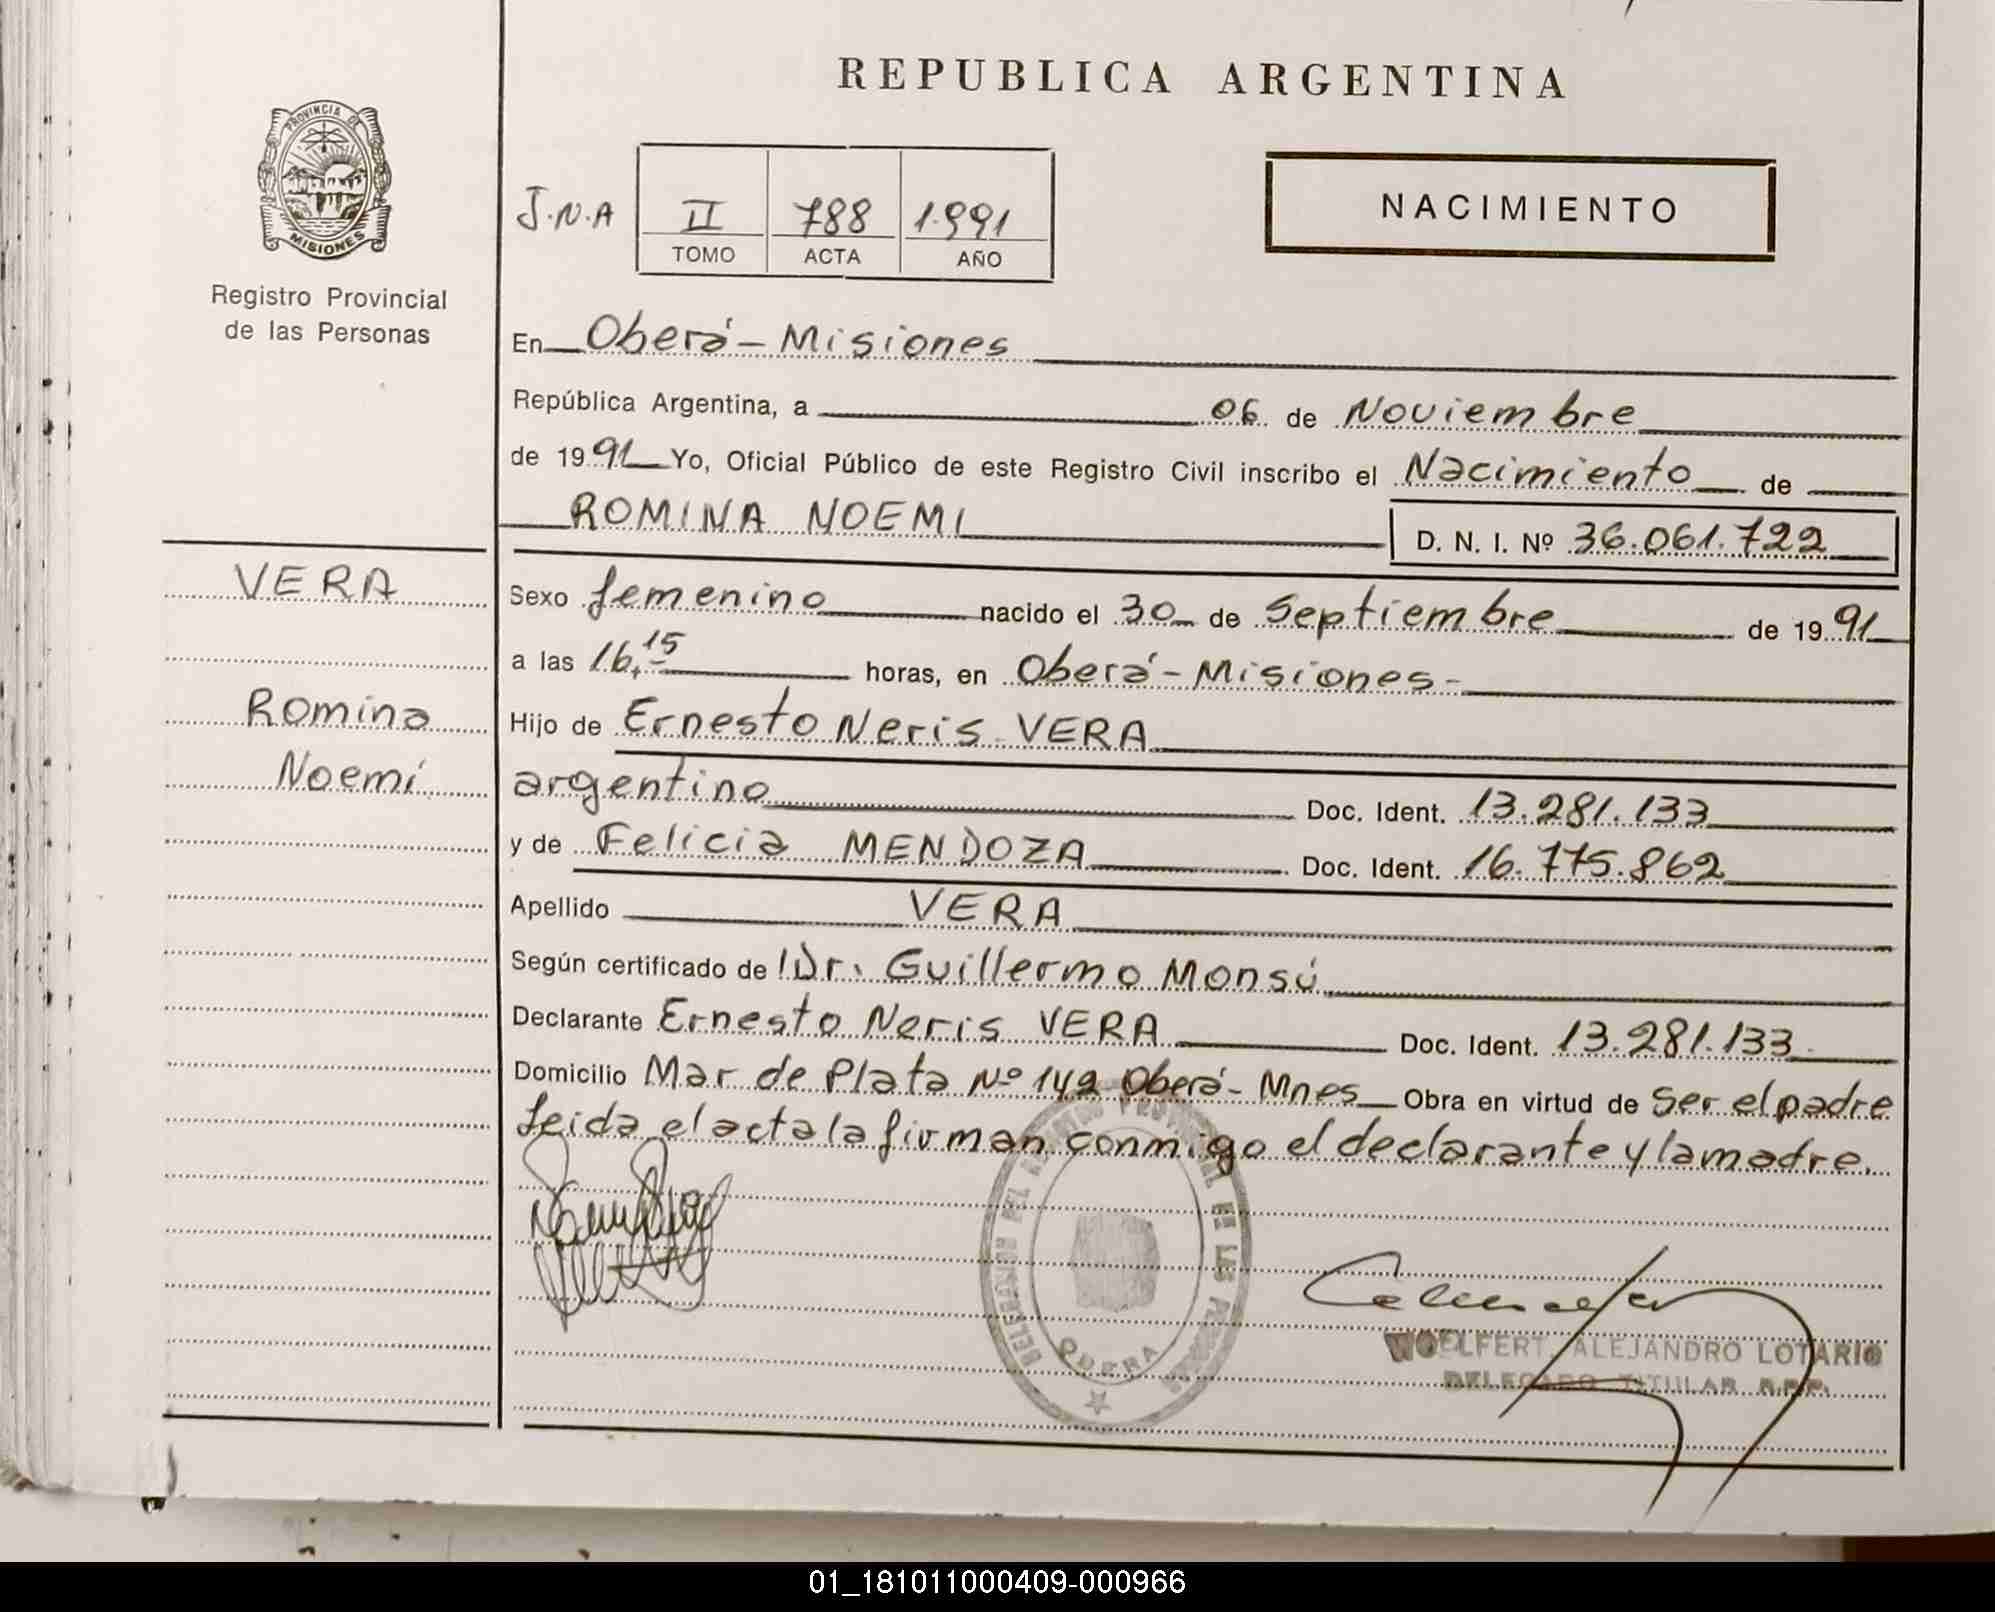 REPUBLICA ARGENTINA
PROVINCIA DE
MISIONES
Registro Provincial
de las Personas
J.N.A
II 788 1.991
TOMO ACTA AÑO
NACIMIENTO
En Oberá - Misiones
República Argentina, a 06 de Noviembre
de 1991 Yo, Oficial Público de este Registro Civil inscribo el Nacimiento de
ROMINA NOEMI D. N. I. Nº 36.061.722
VERA
Romina
Noemí
Sexo femenino nacido el 30 de Septiembre de 1991
a las 16,15 horas, en Oberá - Misiones -
Hijo de Ernesto Neris VERA
argentino Doc. Ident. 13.281.133
y de Felicia MENDOZA Doc. Ident. 16.775.862
Apellido VERA
Según certificado de Dr. Guillermo Monsú
Declarante Ernesto Neris VERA Doc. Ident. 13.281.133
Domicilio Mar de Plata Nº 142 Oberá - Mnes Obra en virtud de ser el padre
leida el acta la firman conmigo el declarante y la madre.
DELEGACION DEL REGISTRO PROVINCIAL DE LAS PERSONAS
OBERA
WOELFERT, ALEJANDRO LOTARIO
DELEGADO TITULAR R.P.P.
01_181011000409-000966